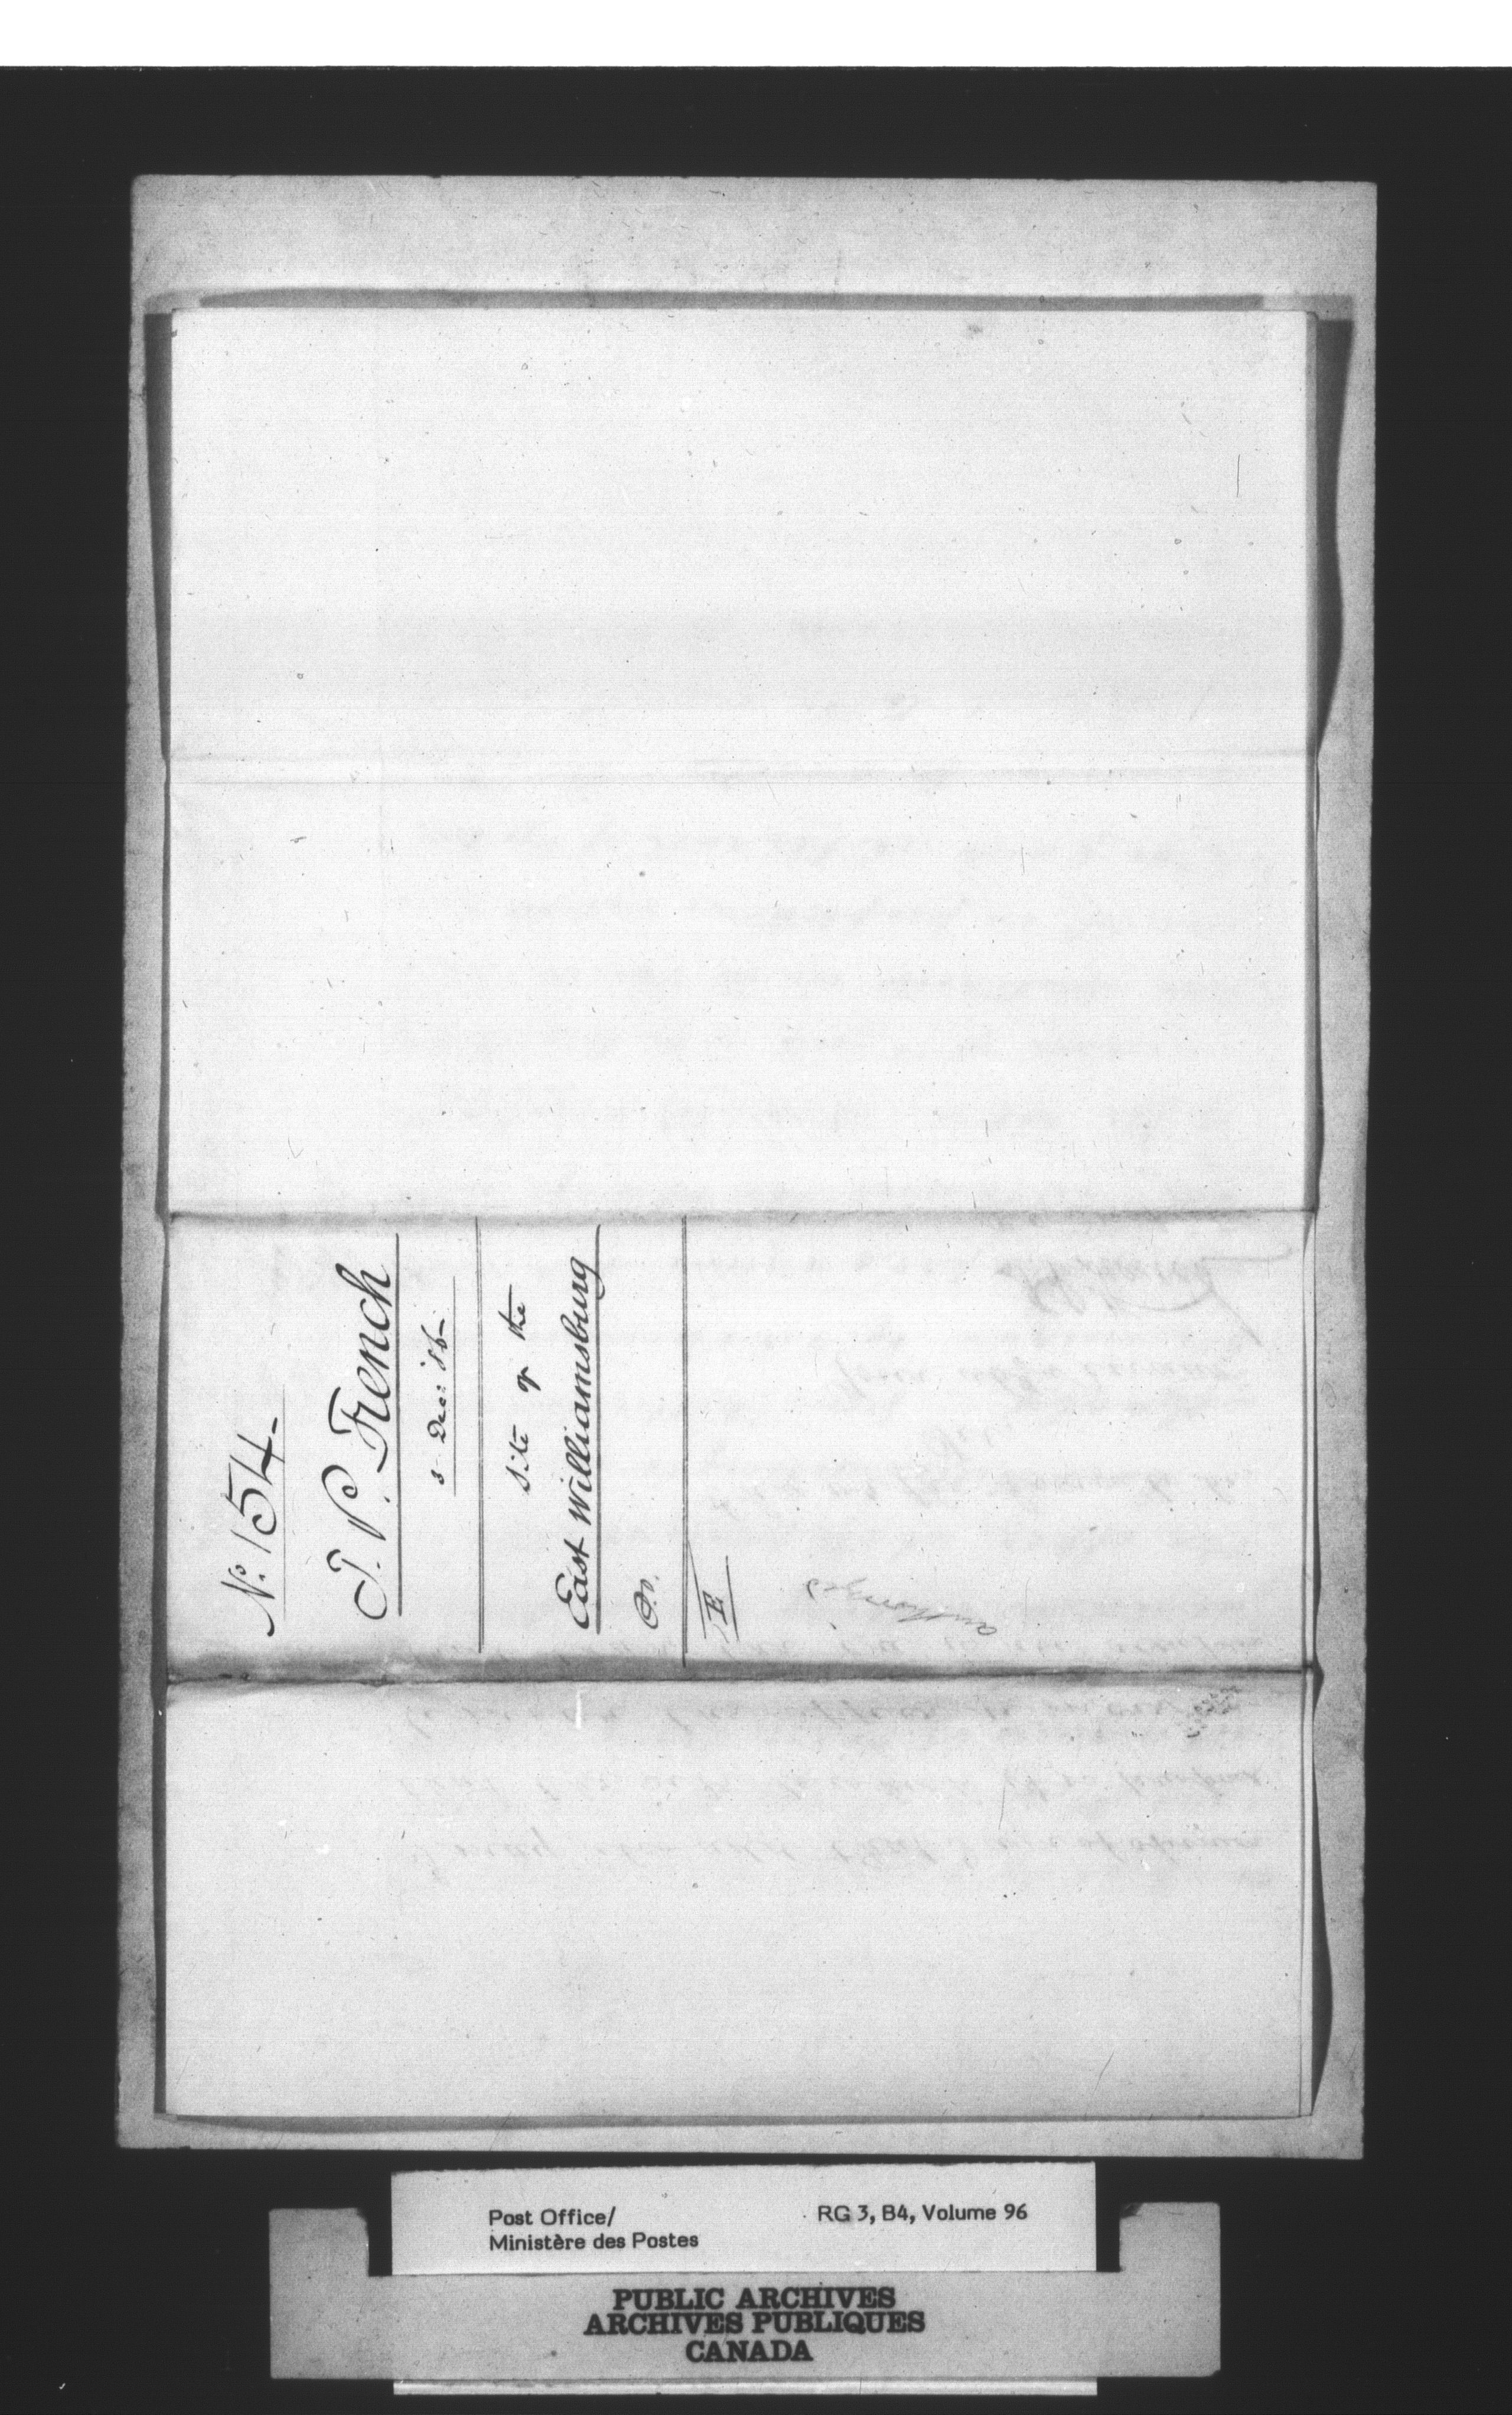 No. 154-
T. P. French
5 Dec: '56-
Site of the
East Williamsburg
P.O.
E
Authorized
Post Office/
Ministère des Postes
RG 3, B4, Volume 96
PUBLIC ARCHIVES
ARCHIVES PUBLIQUES
CANADA